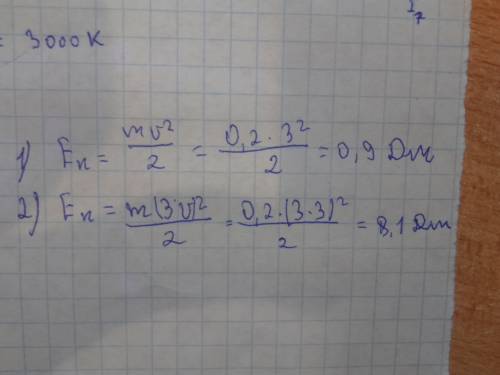 = 3000 К
1) Eк = mv²/2 = 0,2·3²/2 = 0,9 Дж
2) Eк = m(3·v)²/2 = 0,2·(3·3)²/2 = 8,1 Дж